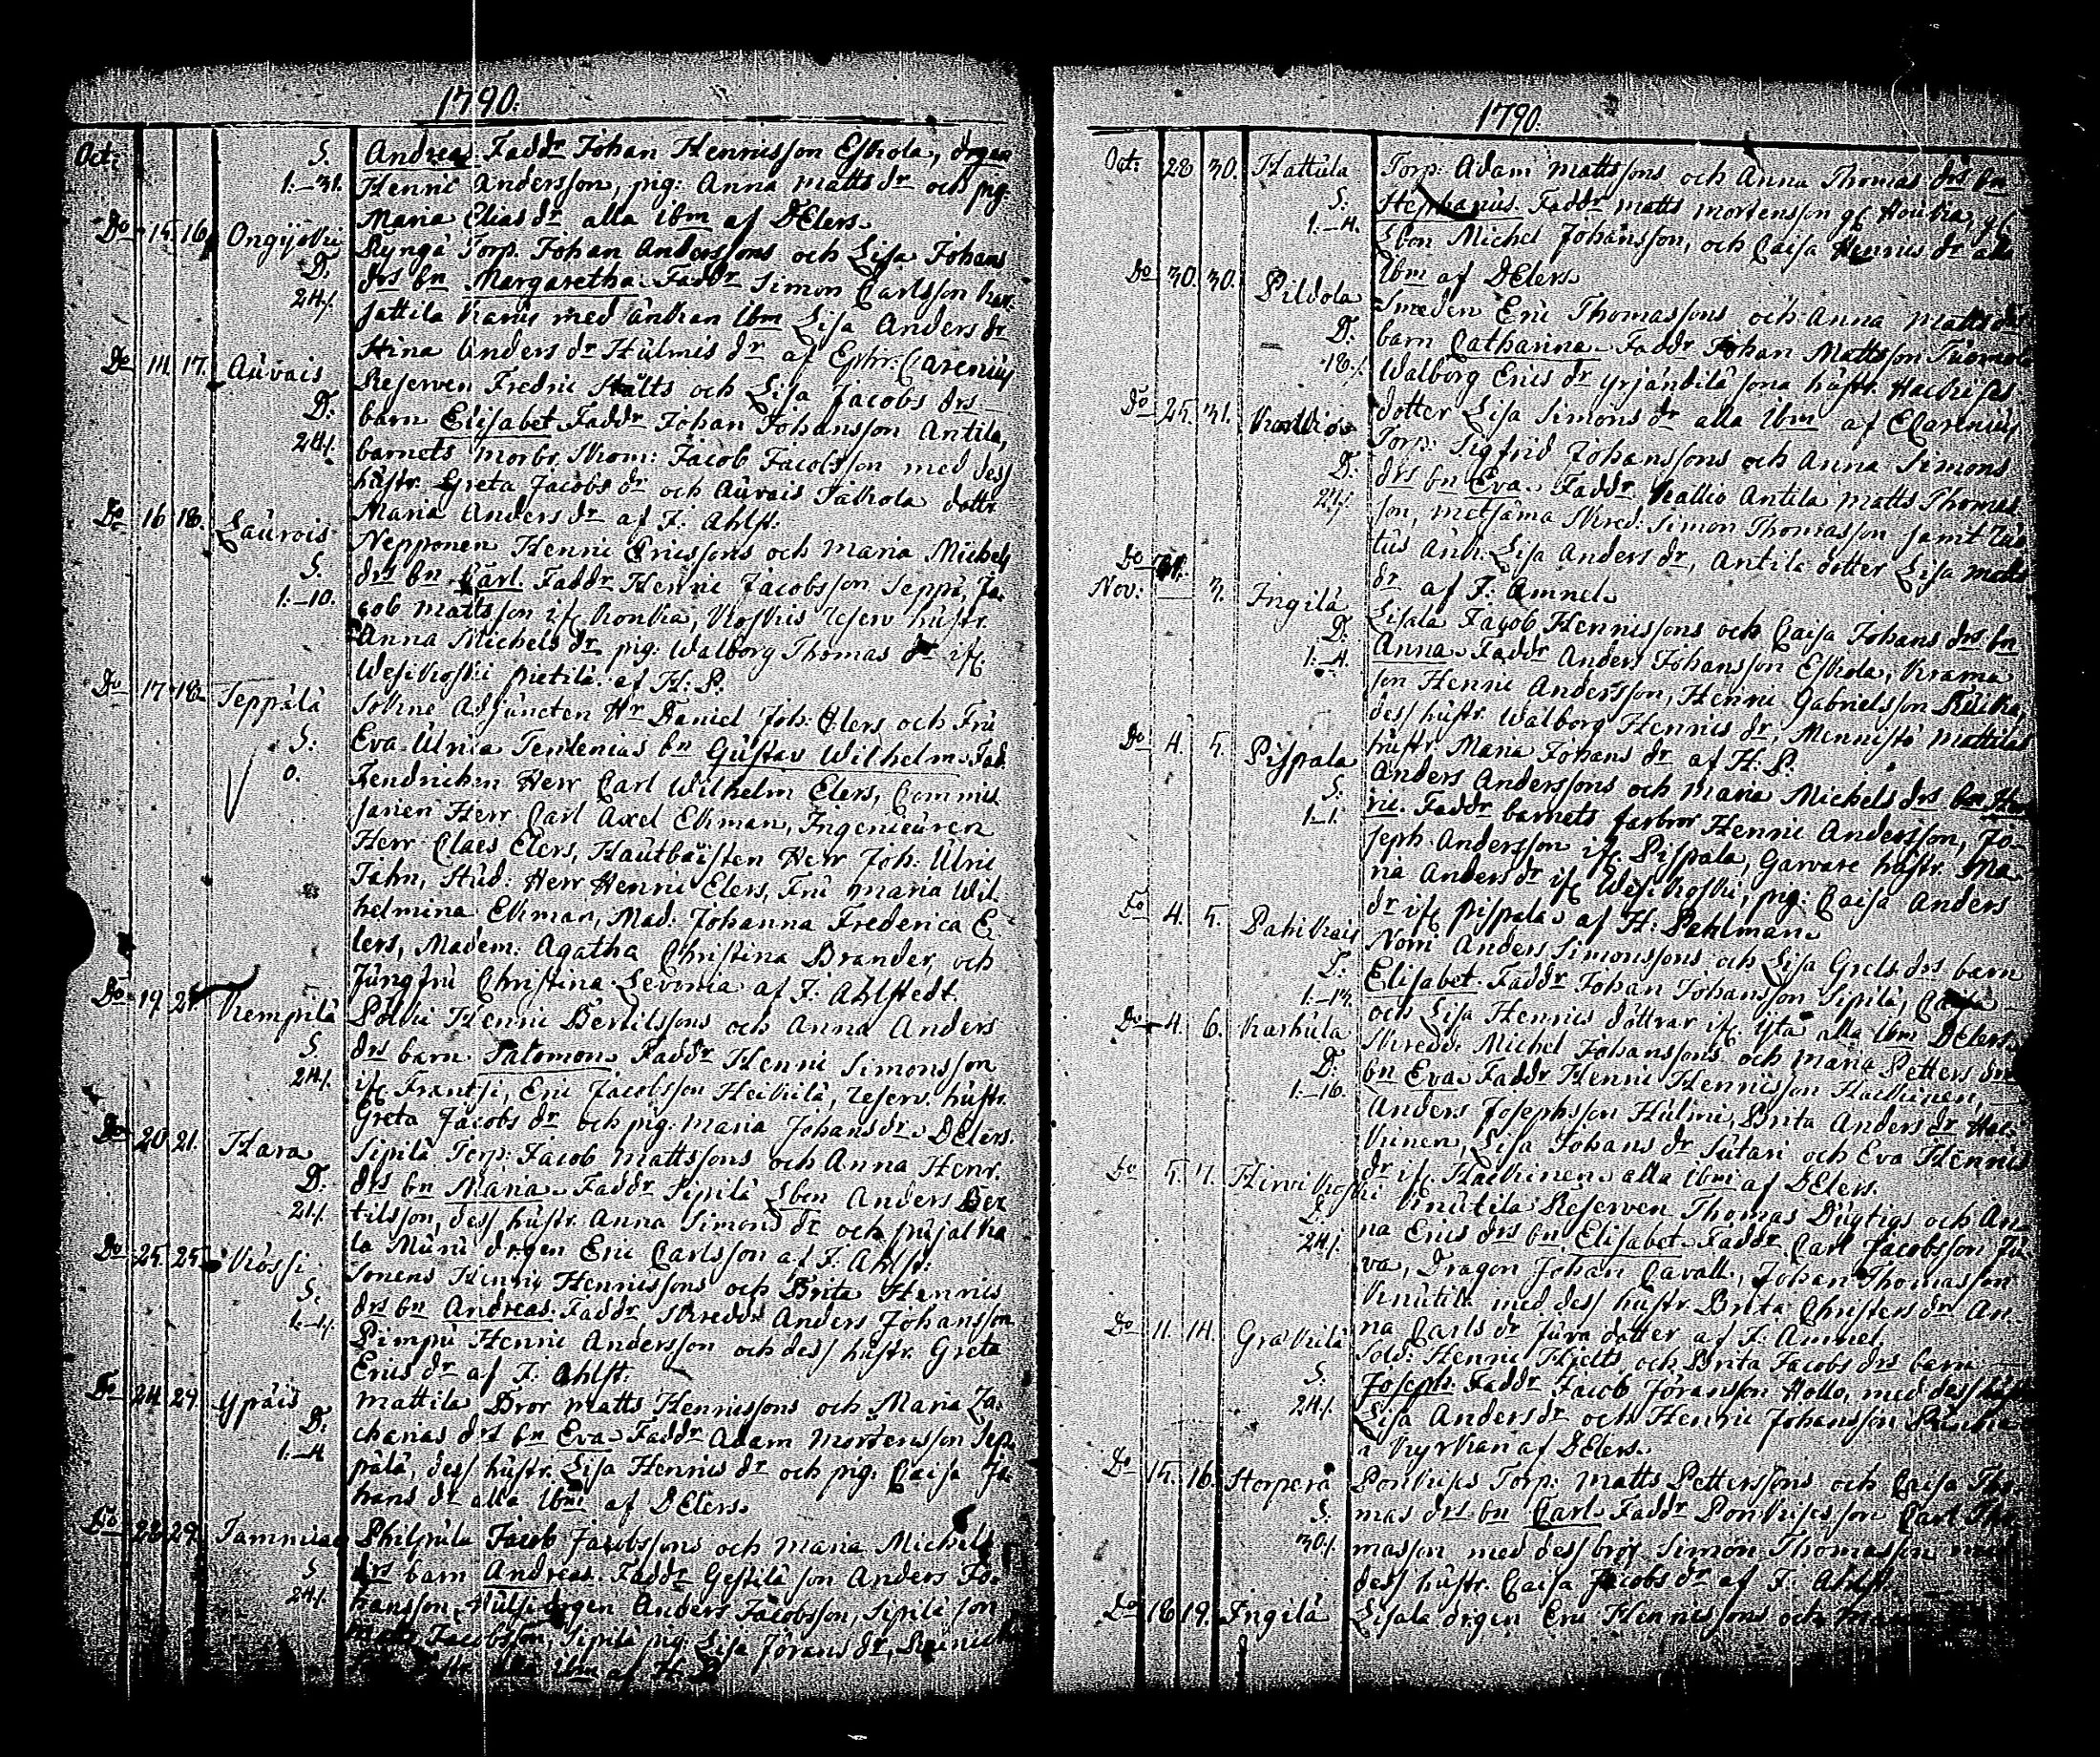 1790.
Oct: S. Andreas. Faddr Johan Henricsson Eskola, drgen
1.–31. Henric Andersson, pig: Anna Matts dr och pig:
Maria Elias dr alla ibm af DElers.
Do 15. 16. Ongijoki Ryngä Torp. Johan Anderssons och Lisa Johans
D. drs bn Margaretha. Faddr Simon Carlsson
24/. sattila med änkan ibm Lisa Anders dr
Stina Anders dr Hulmis dr af Carenius
Do 14. 17. Auvais Reserven Fredric Stålts och Lisa Jacobs drs
D. barn Elisabet. Faddr Johan Johansson Antila,
24/. barnets morbr. Skom: Jacob Jacobsson med dess
hustr. Greta Jacobs dr och Auvais dottr
Maria Anders dr af J: Ahlst:
Do 16 18. Laurois Nepponen Henric Ericssons och Maria Michels
S. drs bn Carl. Faddr Henric Jacobsson Seppä, Ja-
1.–10. cob Mattsson ifr. Konkia, Koskis reserv hustr.
Anna Michels dr, pig: Walborg Thomas dr ifr.
Wesikoski pietilä. af H: P.
Do 17. 18. Seppälä Sokne Adjuncten Hr Daniel Joh: Elers och Fru
S. Eva Ulrica Terlenias bn Gustav Wilhelm. Fad.
0. Fendricken Herr Carl Wilhelm Elers, Commis
sarien Herr Carl Axel Ekman, Ingenieuren
Herr Claes Elers, Hautboisten Herr Joh: Ulric
Jahn, Stud: Herr Henric Elers, Fru Maria Wil-
helmina Ekman, Mad: Johanna Frederica E-
lers, Madem: Agatha Christina Brander, och
Jungfru Christina Levonia af J: Ahlstedt.
Do 19. 21. Kempilä Pålki Henric Bertilssons och Anna Anders
S. drs barn Salomon. Faddr Henric Simonsson
24/. ifr Frantsi, Eric Jacobsson Heikilä, reserv. hustr.
Greta Jacobs dr och pig: Maria Johans dr. DElers.
Do 20. 21. Hara Sipilä Torp: Jacob Mattssons och Anna Henr.
D. drs bn Maria. Faddr Sipilä Anders Ber
21/. tilsson, dess hustr. Anna Simons dr och
la drgen Eric Carlsson af J: Ahlst:
Do 25. 25. Kössi Sonens Henric Henricssons och Brita Henrics
S. drs bn Andreas. Faddr Skredd: Anders Johansson
Pimpu Henric Andersson och dess hustr. Greta
Erics dr af J: Ahlst:
Do 24. 29. Ypäis Mattila Bror Matts Henricssons och Maria Za-
D. charias drs bn Eva. Faddr Adam Mortensson Sep-
1.–4. pälä, dess hustr. Lisa Henrics dr och pig: Caisa Jo-
hans dr alla ibm af DElers.
Do 28. 29. Tammian Jacob Jacobssons och Maria Michels
S. drs barn Andreas. Faddr son Anders Jo-
24/. hansson, drgen Anders Jacobsson, Sipilä son
Matts Jacobsson, Sipilä pig: Lisa Jörans dr,
alla ibm af H: P.
1790.
Oct: 28 30. Hattula Torp: Adam Mattssons och Anna Thomas drs bn
S. Stephanus. Faddr Matts Mortensson
1.–4. Michel Johansson, och Caisa Henrics dr alla
ibm af DElers.
Do 30. 30. Pildola Smeden Eric Thomassons och Anna Matts drs
D. barn Catharina. Faddr Johan Mattsson
18/. Walborg Erics dr sona hustr.
dotter Lisa Simons dr alla ibm af
Do 25. 31. Torp: Sigfrid Johanssons och Anna Simons
D. drs bn Eva. Faddr Kallio Antila Matts Thomas
24/. son, Simon Thomasson samt
Lisa Anders dr, Antila dotter Lisa Matts
Do 31. dr af J: Amnel.
Nov: 3. Ingilä Lisala Jacob Henricssons och Caisa Johans drs bn
D. Anna. Faddr Anders Johansson Eskola, Krama
1.–4. son Henric Andersson, Henric Gabrielsson
dess hustr. Walborg Henrics dr, Mennistö Mattilas
hustr. Maria Johans dr af H: P:
Do 4. 5. Pispala Anders Anderssons och Maria Michels drs bn Hen
S. ric. Faddr barnets farbror Henric Andersson, Jo-
1.–1. seph Andersson ifr. Pispala, Garvare hustr. Ma-
ria Anders dr ifr Wesikoski, pig: Caisa Anders
dr ifr pispala. af H: Pahlman.
Do 4. 5. Pahikais Anders Simonssons och Lisa Grels drs barn
D. Elisabet. Faddr Johan Johansson Sipilä, Caisa
1.–13. och Lisa Henrics döttrar ifr. alla ibm DElers.
Do 4. 6. Karhula Skredd: Michel Johanssons och Maria Petters drs
D. bn Eva. Faddr Henric Henricsson Haikinen,
1.–16. Anders Josephsson Hulmi, Brita Anders dr Hai-
kinen, Lisa Johans dr Sutari och Eva Henrics
dr ifr. Haikinen alla ibm af DElers.
Do 5. 7. Hirvikoski Knutila Reserven Thomas Dugtigs och An-
D. na Erics drs bn Elisabet. Faddr Carl Jacobsson Ju-
24/. va, Dragon Johan Cavall, Johan Thomasson
Knutila med dess hustr. Brita Christers dr An-
na Carls dr Juva dotter af J: Amnel.
Do 11. 14. Gräkilä Sold: Henric Hjelts och Brita Jacobs drs barn
S. Joseph. Faddr Jacob Joransson Hollo, med dess hustr
24/. Lisa Anders dr och Henric Johansson
i kyrkian af DElers.
Do 15. 16. Storperä Torp: Matts Petterssons och Caisa Tho-
S. mas drs bn Carl. Faddr son Carl Tho-
30/. masson med dess bror Simon Thomasson med
dess hustr. Caisa Jacobs dr af J: Ahlst.
Do 18 19. Ingilä Lisala drgen Eric Henricssons och